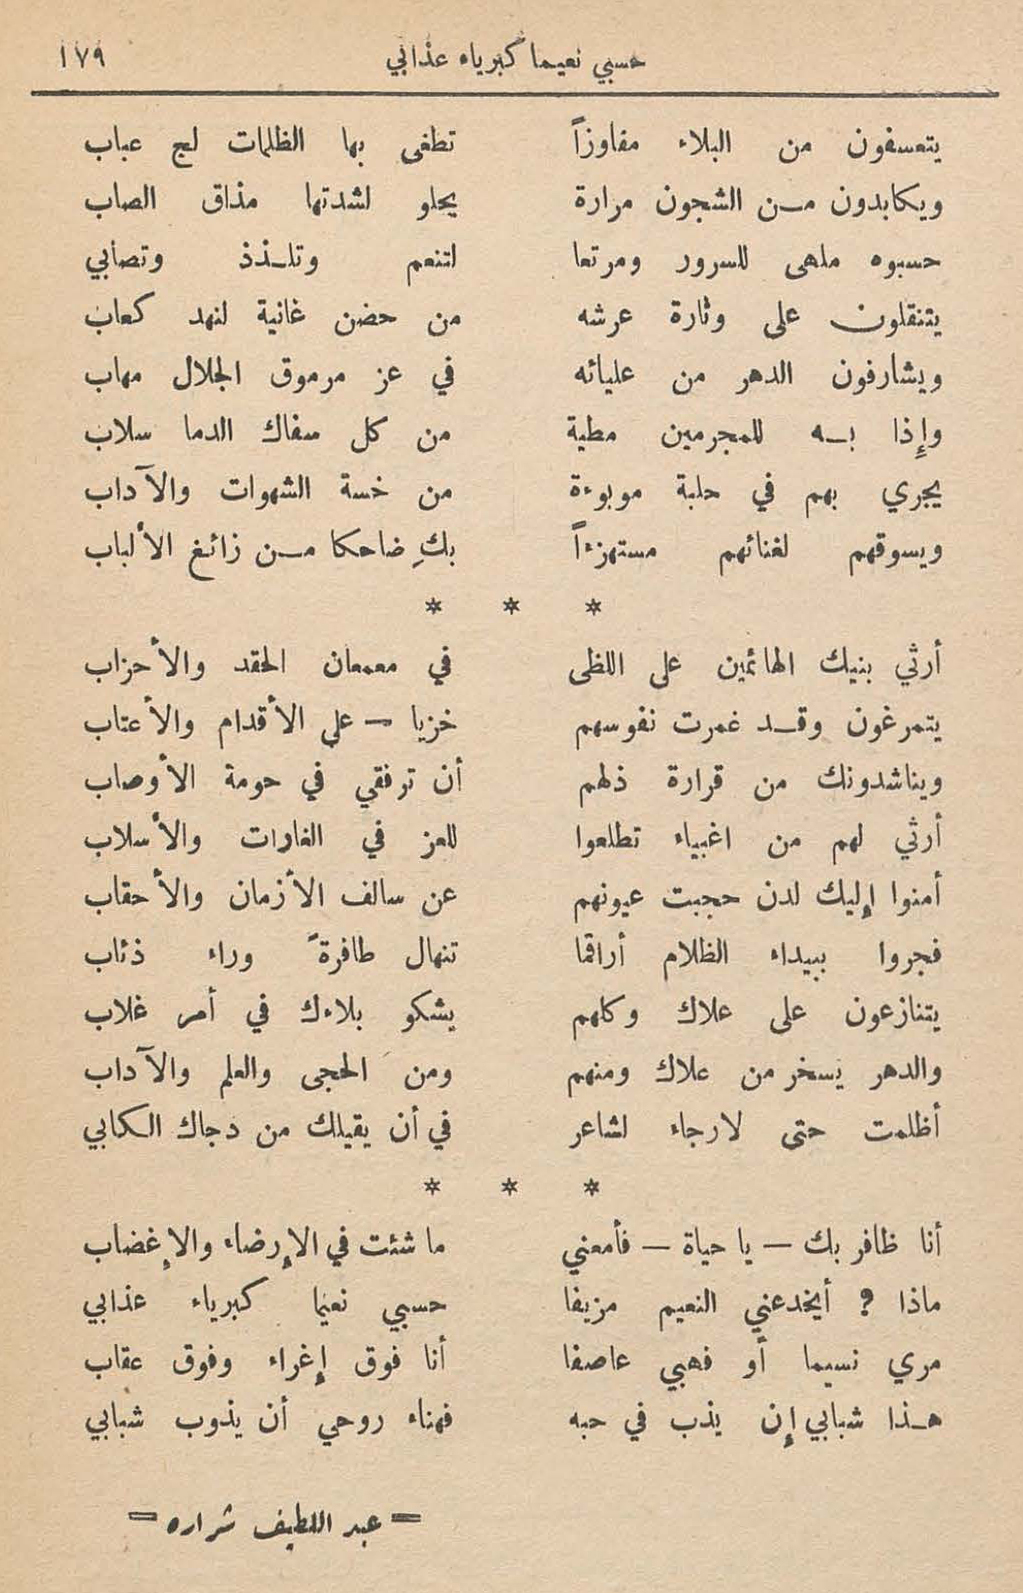 حسبي نعيما كبرياء عذابي ١٧٩
يتعسفون من البلاء مفاوزاً تطغى بها الظلمات لج عباب
ويكابدون من الشجون مرارة يحلو لشدتها مذاق الصاب
حسبوه ملهى للسرور ومرتعا لتنعم وتلذذ وتصابي
يتنقلون على وثارة عرشه من حضن غانية لنهد كعاب
ويشارفون الدهر من عليائه في عز مرموق الجلال مهاب
وإذا به للمجرمين مطية من كل سفاك الدما سلاب
يجري بهم في حلبة موبوءة من خسة الشهوات والآداب
ويسوقهم لغنائهم مستهزءاً بكِ ضاحكا من زائغ الألباب
* * *
أرثي بنيك الهائمين على اللظى في معمعان الحقد والأحزاب
يتمرغون وقد غمرت نفوسهم خزيا – على الأقدام والأعتاب
ويناشدونك من قرارة ذلهم أن ترفقي في حومة الأوصاب
أرثي لهم من اغبياء تطلعوا للعز في الغارات والأسلاب
أمنوا إليك لدن حجبت عيونهم عن سالف الأزمان والأحقاب
فجروا ببيداء الظلام أراقما تنهال طافرةً وراء ذئاب
يتنازعون على علاك وكلهم يشكو بلاءك في أمر غلاب
والدهر يسخر من علاك ومنهم ومن الحجى والعلم والآداب
أظلمت حتى لا رجاء لشاعر في أن يقيلك من دجاك الكابي
* * *
أنا ظافر بك – يا حياة – فأمعني ما شئت في الإرضاء والإغضاب
ماذا ؟ أيخدعني النعيم مزيفا حسبي نعيما كبرياء عذابي
مري نسيما أو فهبي عاصفا أنا فوق إغراء وفوق عقاب
هذا شبابي إن يذب في حبه فهناء روحي أن يذوب شبابي
= عبد اللطيف شراره =